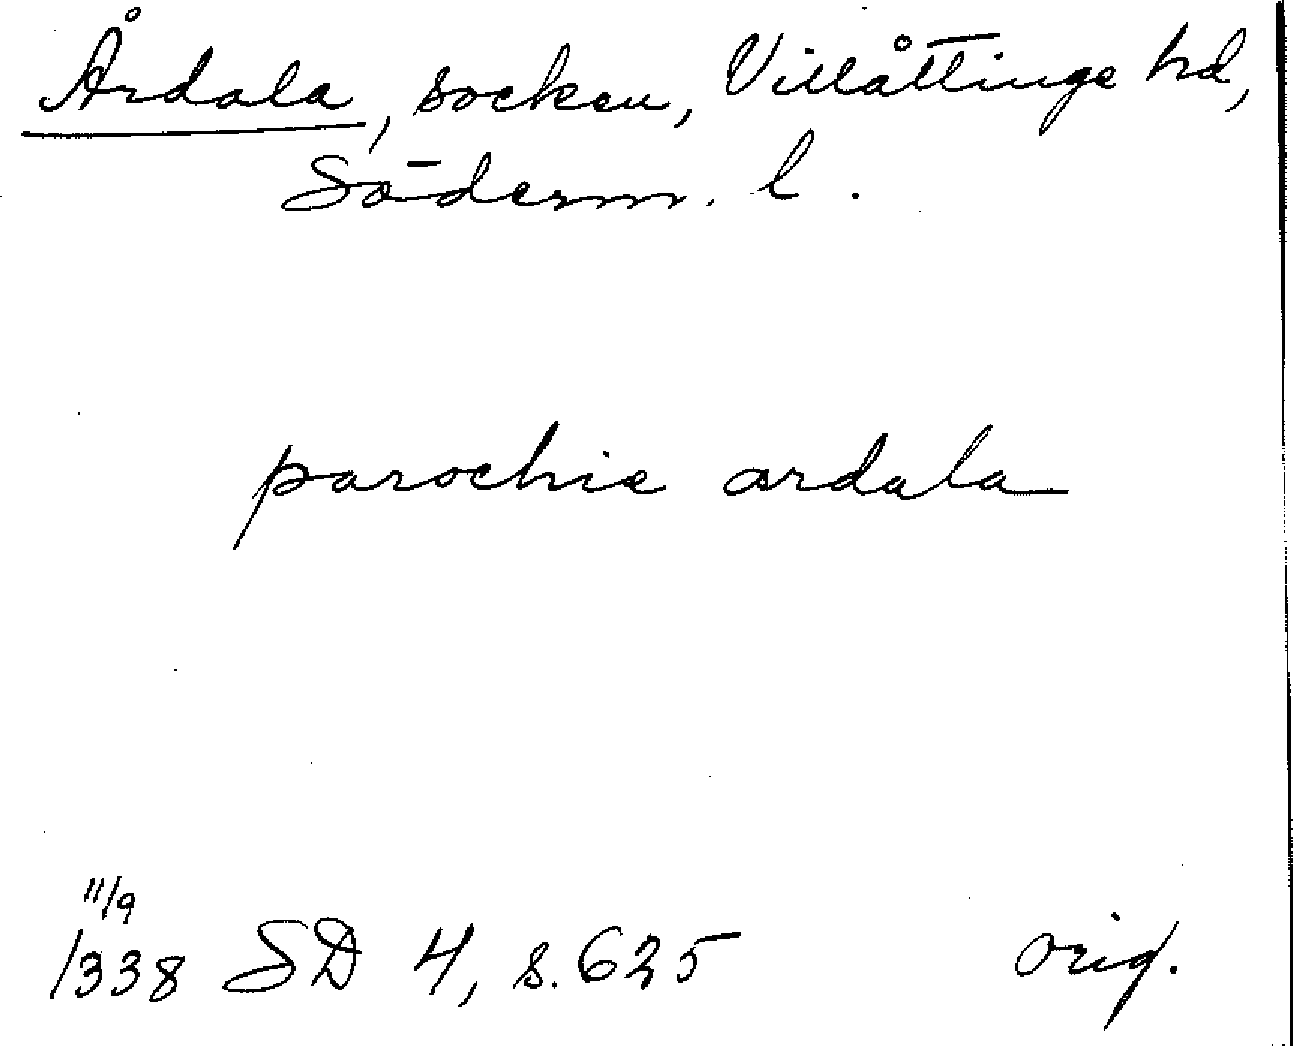 Årdala, socken, Villåttinge hd,
Söderm. l.
parochie ardala
11/9
1338 SD 4, s. 625 orig.